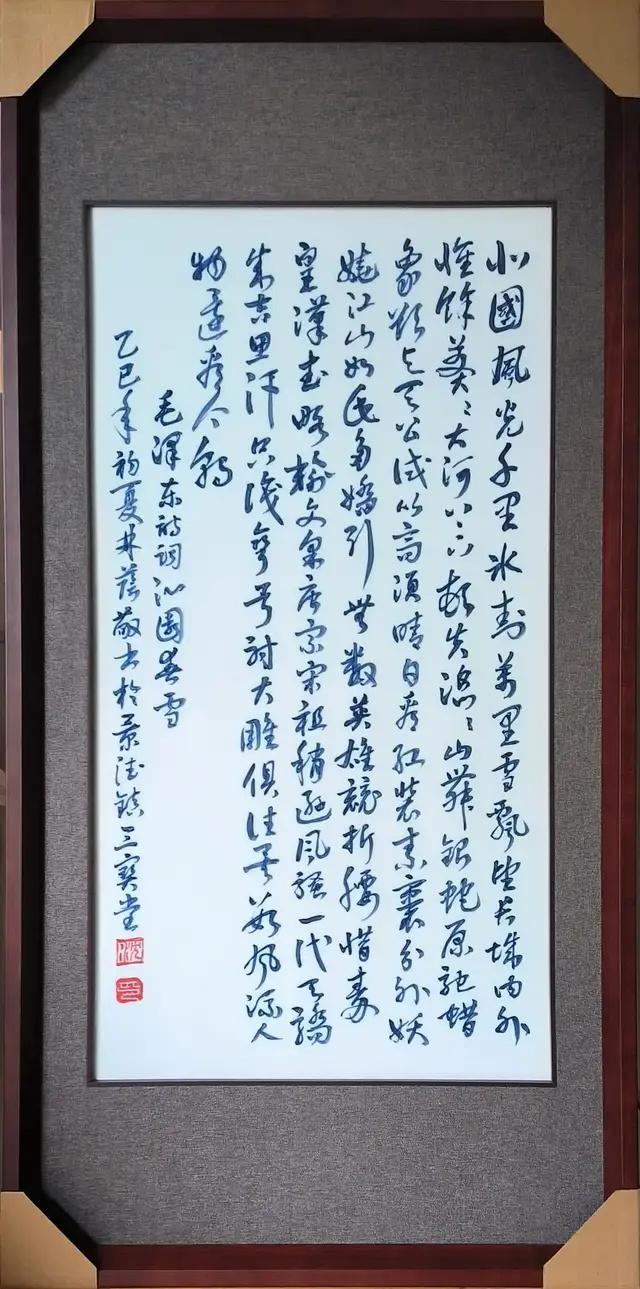 北國風光千里冰封萬里雪飄望長城內外
惟餘莽〻大河上下頓失滔〻山舞銀蛇原馳蠟
象欲與天公試比高須晴日看紅裝素裹分外妖
嬈江山如此多嬌引無數英雄競折腰惜秦
皇漢武略輸文采唐宗宋祖稍遜風騷一代天驕
成吉思汗只識彎弓射大雕俱往矣數風流人
物還看今朝
毛澤東詩詞沁園春雪
乙巳年初夏林蔭敬书於景德鎮三寶堂